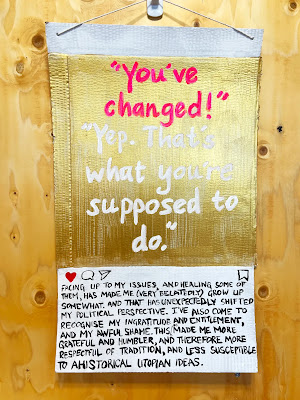 "You've
changed!"
"Yep. That's
what you're
supposed to
do."
FACING UP TO MY ISSUES, AND HEALING SOME OF
THEM, HAS MADE ME (VERY BELATEDLY) GROW UP
SOMEWHAT. AND THAT HAS UNEXPECTEDLY SHIFTED
MY POLITICAL PERSPECTIVE. I'VE ALSO COME TO
RECOGNISE MY INGRATITUDE AND ENTITLEMENT,
AND MY AWFUL SHAME. THIS MADE ME MORE
GRATEFUL AND HUMBLER, AND THEREFORE MORE
RESPECTFUL OF TRADITION, AND LESS SUSCEPTIBLE
TO AHISTORICAL UTOPIAN IDEAS.